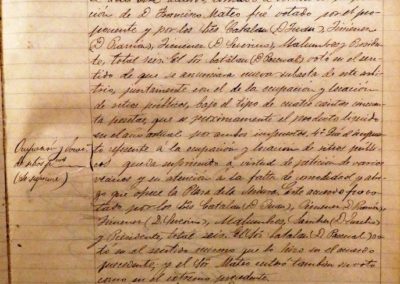 ción de D. Francisco Mateo fué votado por el pro-
ponente y por los Sres Catalan (D. Juan), Jimenez
(D. Ramon), Jimenez (D. Severino), Malumbres y Presidente,
total seis. El Sr. Catalan (D. Pascual) votó en el sen-
tido de que se anunciara nueva subasta de este arbi-
trio, juntamente con el de la ocupacion y locacion
de sitios públicos, bajo el tipo de cuatro cientas cincuenta
pesetas, que es proximamente el producto liquido
en el año actual por ambos impuestos. 4º Que el impuesto
referente á la ocupacion y locacion de sitios públi-
cos, quede suprimido á virtud de peticion de varios
vecinos y en atencion á la falta de comodidad y abri-
go que ofrece la Plaza de la. Este acuerdo fue vo-
tado por los Sres Catalan (D. Juan), Jimenez (D. Ramon),
Jimenez (D. Severino), Malumbres, Sanchez (D.
y Presidente, total seis. El Sr. Catalan (D. Pascual) vo-
tó en el sentido mismo que lo hizo en el acuerdo
precedente; y el Sr. Mateo tambien su voto
como en el extremo precedente.
Ocupacion y locac.
de sitios públicos
(se suprime)